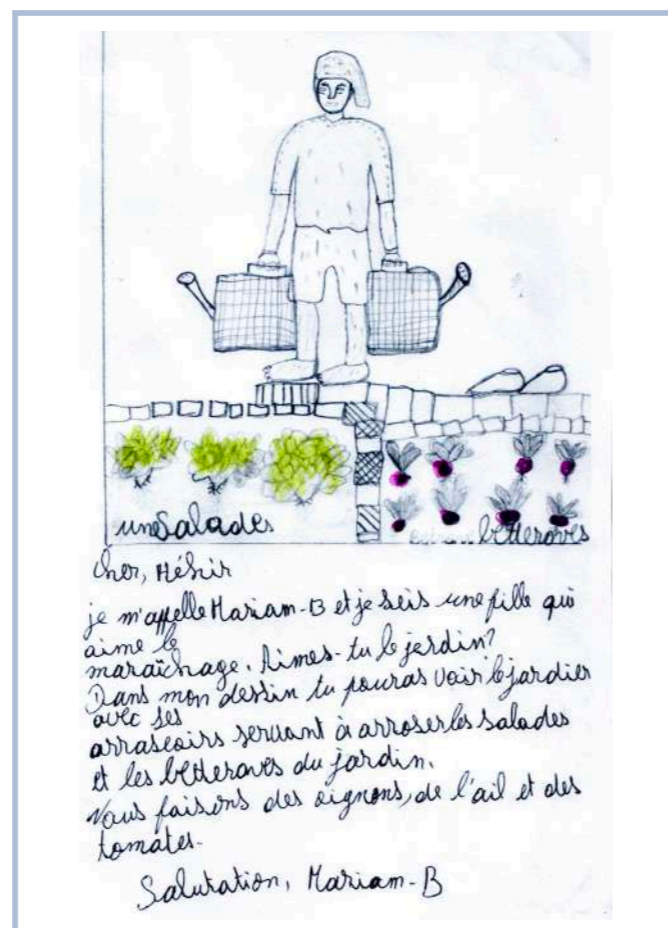 une Salades
betteraves
cher, Méhir
je m'appelle Mariam-B et je seis une fille qui
aime le
maraîchage. Aimes-tu le jardin?
Dans mon dessin tu pouras voir le jardier
avec ses
arraseoirs servant à arroser les salades
et les betteraves du jardin.
Nous faisons des oignons, de l'ail et des
tomates.
Salutation, Mariam-B